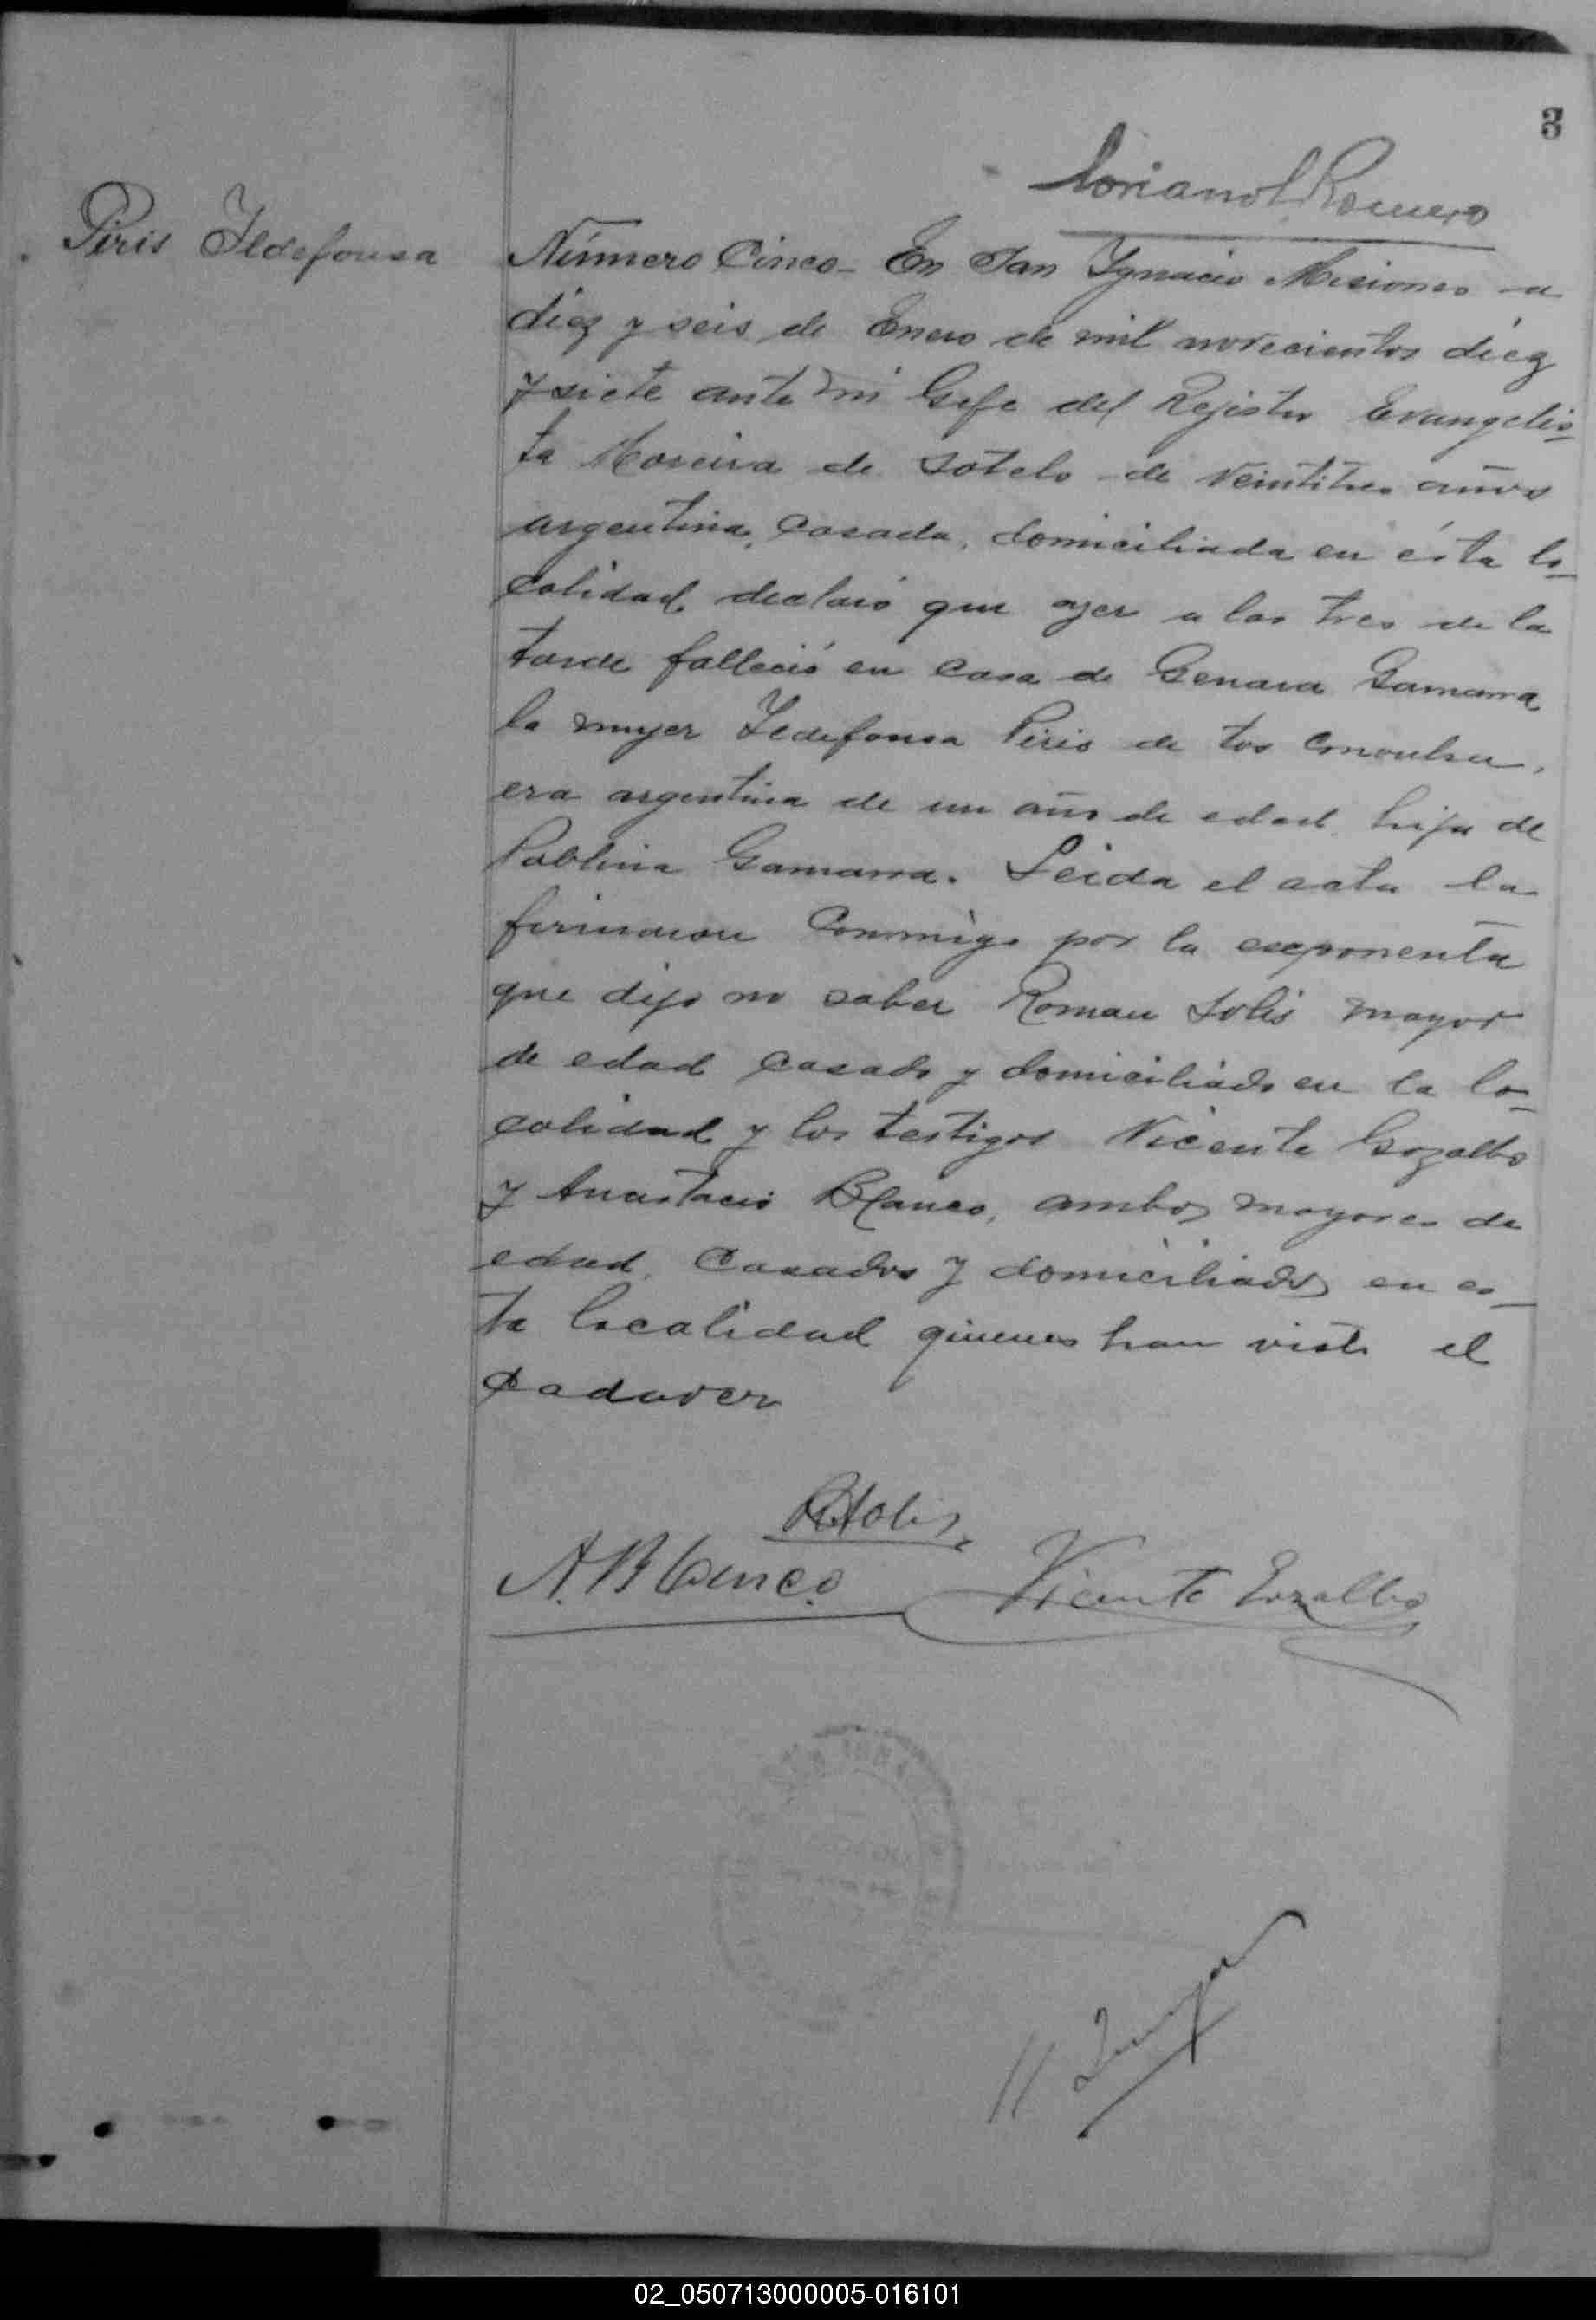 3
Soriano L Romero
Piris Ildefonsa
Número Cinco - En San Ygnacio Misiones a
diez y seis de Enero de mil novecientos diez
y siete ante mi Gefe del Rejistro Evangelis-
ta Moreira de Sotelo de veintitres años
argentina, casada, domiciliada en ésta lo-
calidad declaró que ayer a las tres de la
tarde falleció en casa de Genara Gamarra
la mujer Ildefonsa Piris de tos convulsa,
era argentina de un año de edad hija de
Pablina Gamarra. Leida el acta la
firmaron conmigo por la exponenta
que dijo no saber Roman Solis mayor
de edad casado y domiciliado en la lo-
calidad y los testigos Vicente Gozalbo
y Anastacio Blanco, ambos mayores de
edad, casados y domiciliados en es-
ta localidad quienes han visto el
cadaver
R Solis
A. Blanco
Vicente Gozalbo
02_050713000005-016101